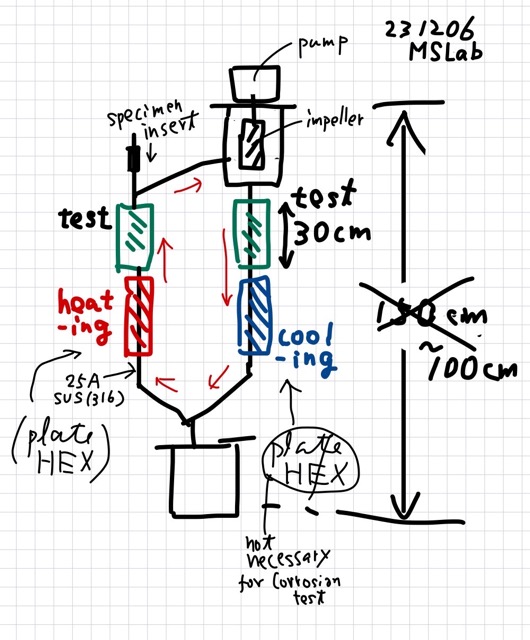 231206
MSLab
pump
specimen
insert
impeller
test
test
30cm
heat
-ing
cool
-ing
150 cm
~100cm
25A
SUS(316)
(plate
HEX)
plate
HEX
not
necessary
for Corrosion
test